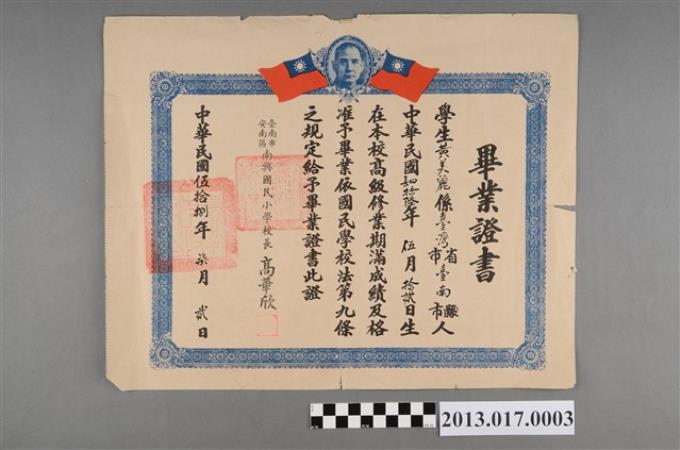 畢業證書
學生黃美麗係臺灣省市臺南縣市人
中華民國肆拾陸年伍月拾貳日生
在本校高級修業期滿成績及格
准予畢業依國民學校法第九條
之規定給予畢業證書此證
臺南市安南區南興國民小學校長 高華欣
中華民國伍拾捌年柒月貳日
2013.017.0003